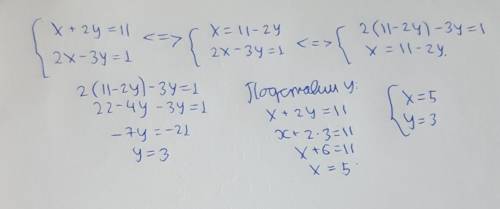 { x + 2y = 11 <=> { x = 11 - 2y <=> { 2(11-2y) - 3y = 1
{ 2x - 3y = 1 { 2x - 3y = 1 { x = 11 - 2y.
2(11-2y) - 3y = 1
22 - 4y - 3y = 1
-7y = -21
y = 3
Подставим y:
x + 2y = 11
x + 2·3 = 11
x + 6 = 11
x = 5.
{ x = 5
{ y = 3